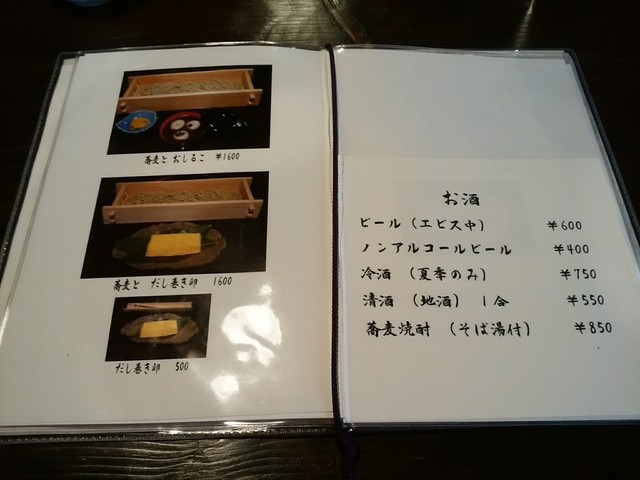 蕎麦と おしるこ ￥1600
蕎麦と だし巻き卵 1600
だし巻き卵 500
お酒
ビール（エビス中） ￥600
ノンアルコールビール ￥400
冷酒 （夏季のみ） ￥750
清酒 （地酒） 1合 ￥550
蕎麦焼酎 （そば湯付） ￥850